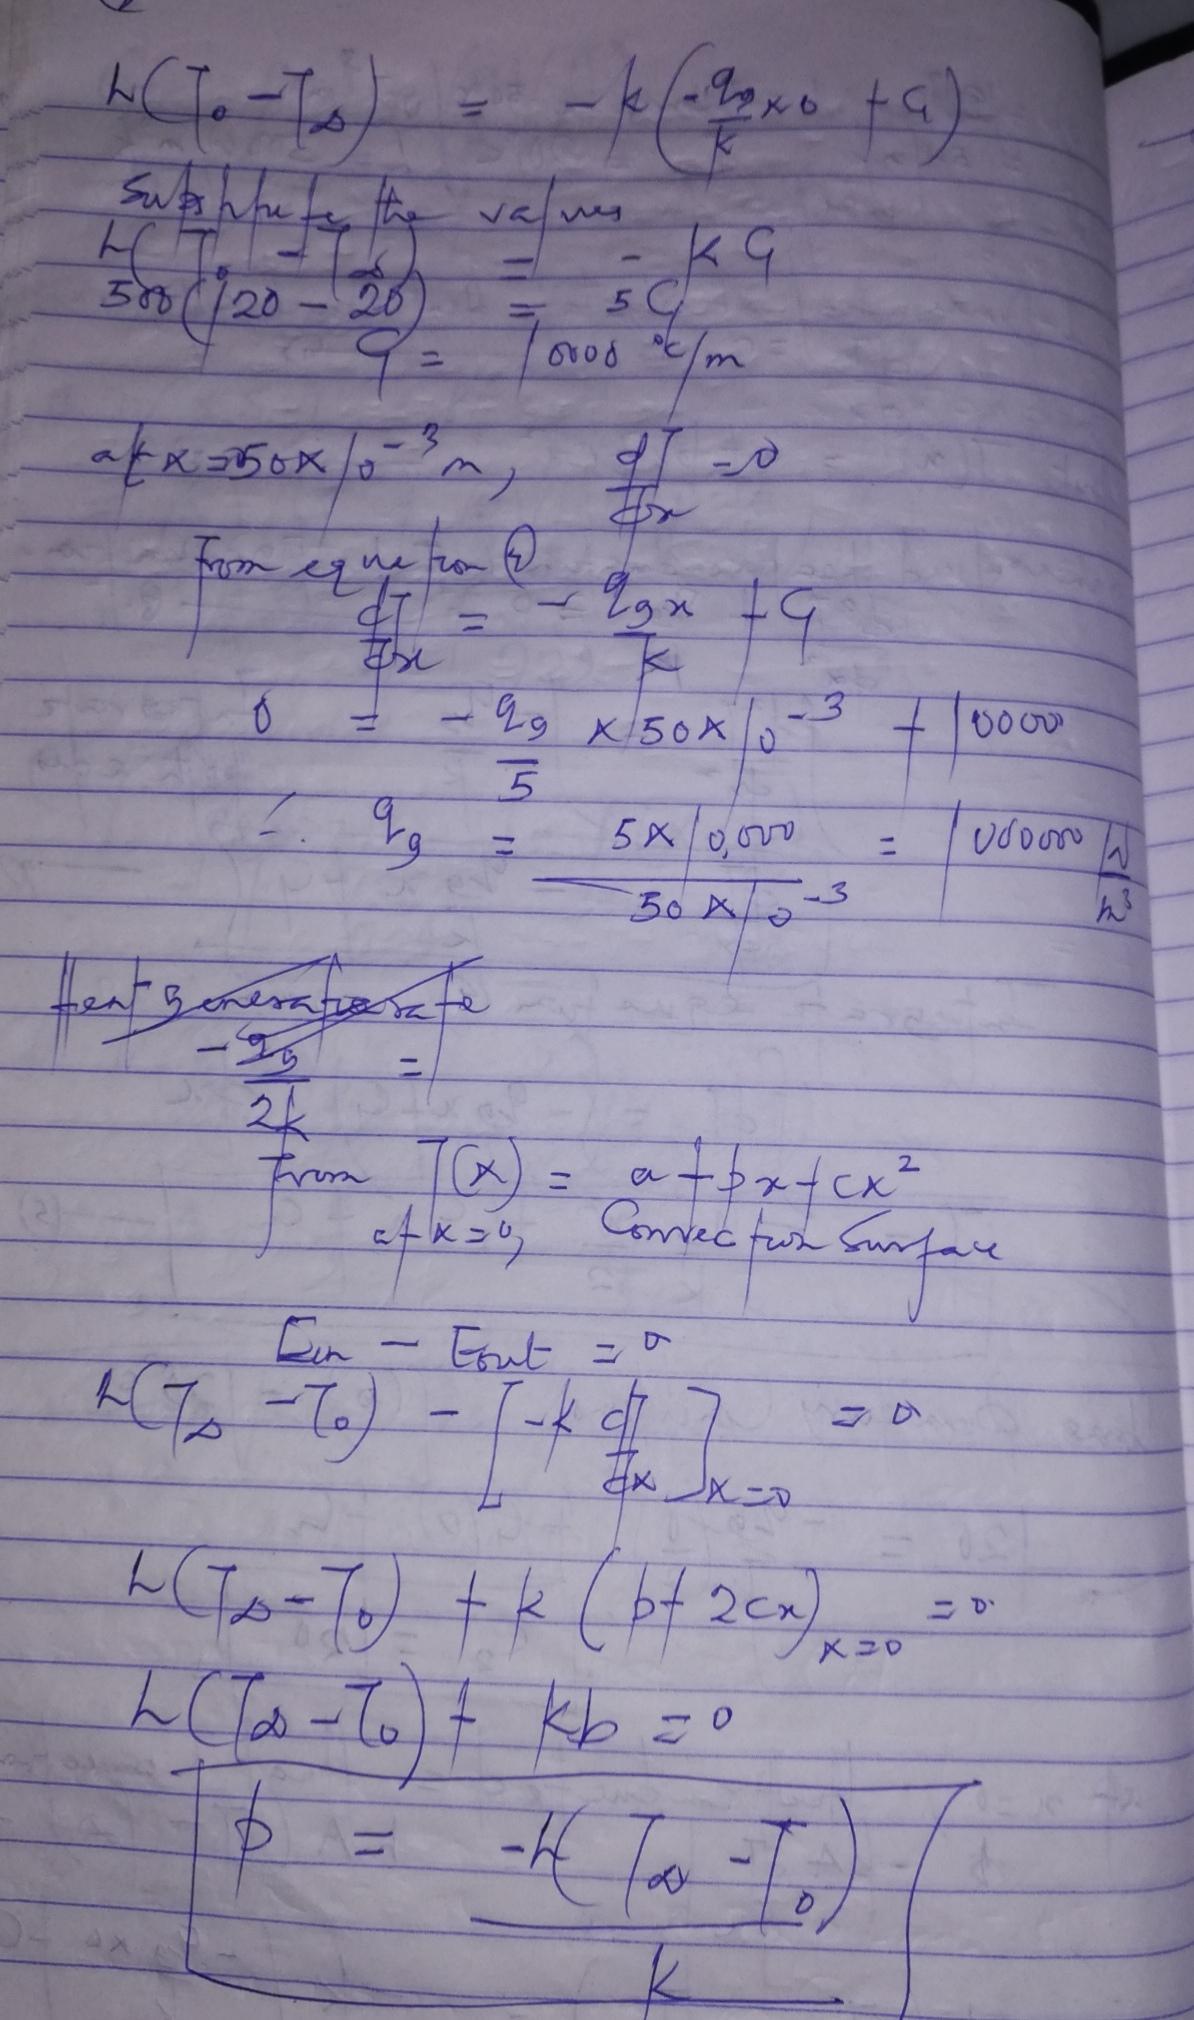 h(T₀ - T∞) = -k(-qg/k x 0 + C₁)
Substitute the values
h(T₀ - T∞) = - k C₁
500(120 - 20) = 5C₁
C₁ = 10000 °C/m
at x = 50 x 10⁻³ m, dT/dx = 0
From equation ②
dT/dx = - qg x/k + C₁
0 = - qg/5 x 50 x 10⁻³ + 10000
∴ qg = 5 x 10,000/50 x 10⁻³ = 1000000 W/m³
Heat generation rate
- qg/2k =
From T(x) = a + bx + cx²
at x = 0, Convection Surface
Ein - Eout = 0
h(T∞ - T₀) - [-k dT/dx]x=0 = 0
h(T∞ - T₀) + k (b + 2cx)x=0 = 0
h(T∞ - T₀) + kb = 0
b = -h(T∞ - T₀)/k